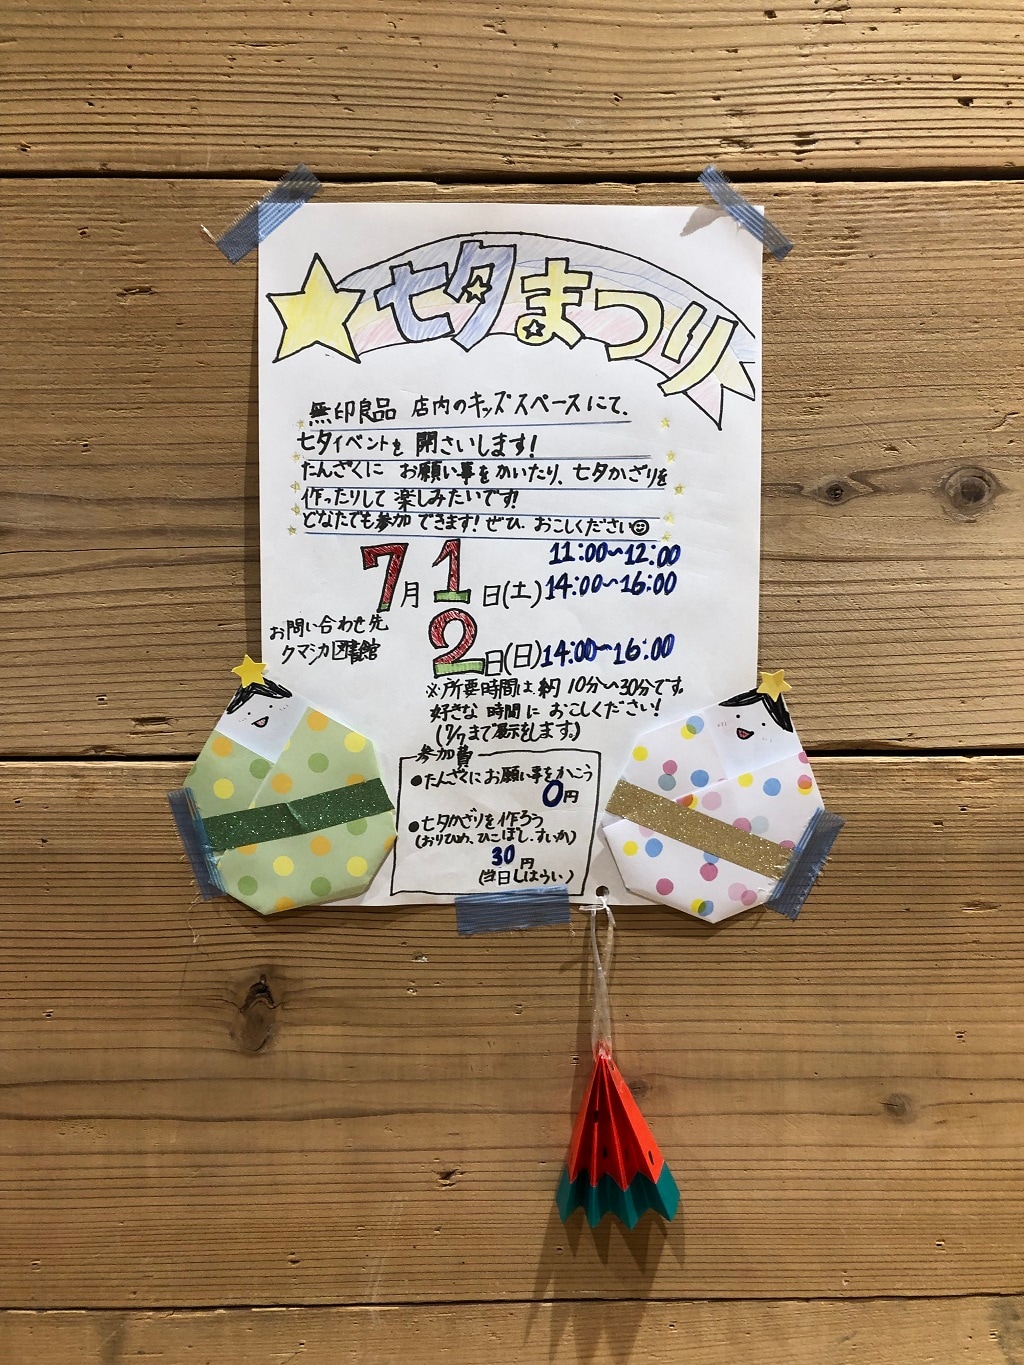 七夕まつり
無印良品 店内のキッズスペースにて、
七夕イベントを 開さいします!
たんざくに お願い事をかいたり、七夕かざりを
作ったりして 楽しみたいです!
どなたでも参加 できます! ぜひ、おこしください☺
7月1日(土) 11:00~12:00
14:00~16:00
2日(日) 14:00~16:00
お問い合わせ先
クマシカ図書館
※所要時間は、約 10分~30分です。
好きな 時間に おこしください!
(7/7まで展示をします。)
参加費
●たんざくにお願い事をかこう
0円
●七夕かざりを作ろう
(おりひめ、ひこぼし、すいか)
30円
(当日しはらい)